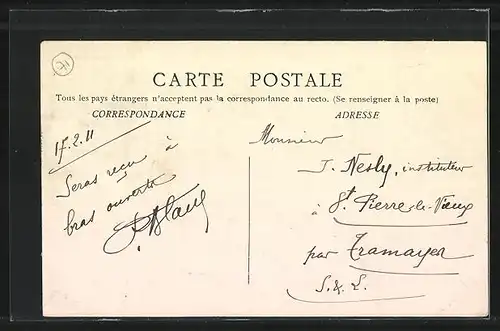 71
CARTE POSTALE
Tous les pays étrangers n'acceptent pas la correspondance au recto. (Se renseigner à la poste)
CORRESPONDANCE
ADRESSE
17.2.11
Seras reçu à
bras ouverts
Monsieur
J. Nesly, instituteur
à St Pierre-le-Vieux
par Tramayes
S.&.L.